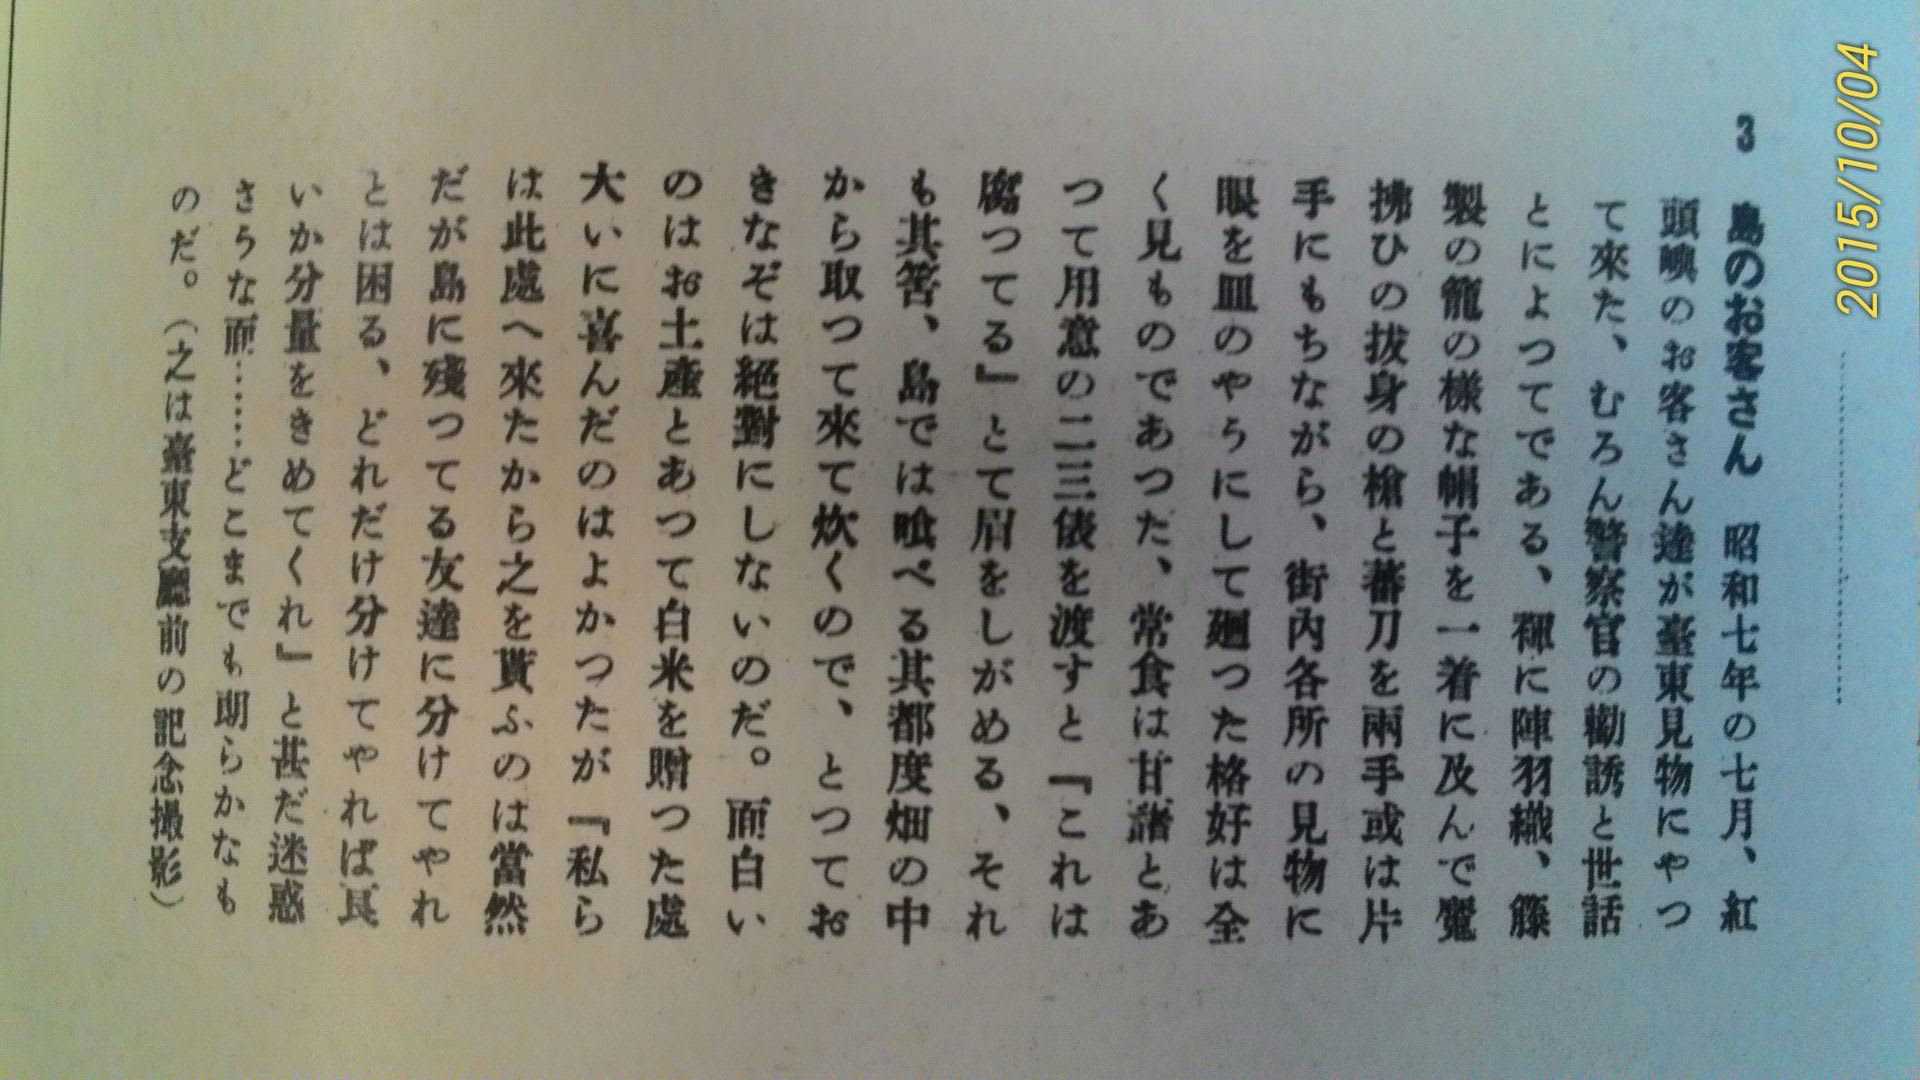 3 島のお客さん 昭和七年の七月、紅
頭嶼のお客さん達が臺東見物にやつ
て來た、むろん警察官の勸誘と世話
とによつてである、褌に陣羽織、籐
製の籠の様な帽子を一着に及んで魔
拂ひの拔身の槍と蕃刀を兩手或は片
手にもちながら、街內各所の見物に
眼を皿のやうにして廻つた格好は全
く見ものであつた、常食は甘藷とあ
つて用意の二三俵を渡すと『これは
腐つてる』とて眉をしがめる、それ
も其筈、島では喰べる其都度畑の中
から取つて來て炊くので、とつてお
きなぞは絕對にしないのだ。面白い
のはお土產とあつて白米を贈つた處
大いに喜んだのはよかつたが『私ら
は此處へ來たから之を貰ふのは當然
だが島に殘つてる友達に分けてやれ
とは困る、どれだけ分けてやれば良
いか分量をきめてくれ』と甚だ迷惑
さうな面……どこまでも朗らかなも
のだ。（之は臺東支廳前の記念撮影）
2015/10/04